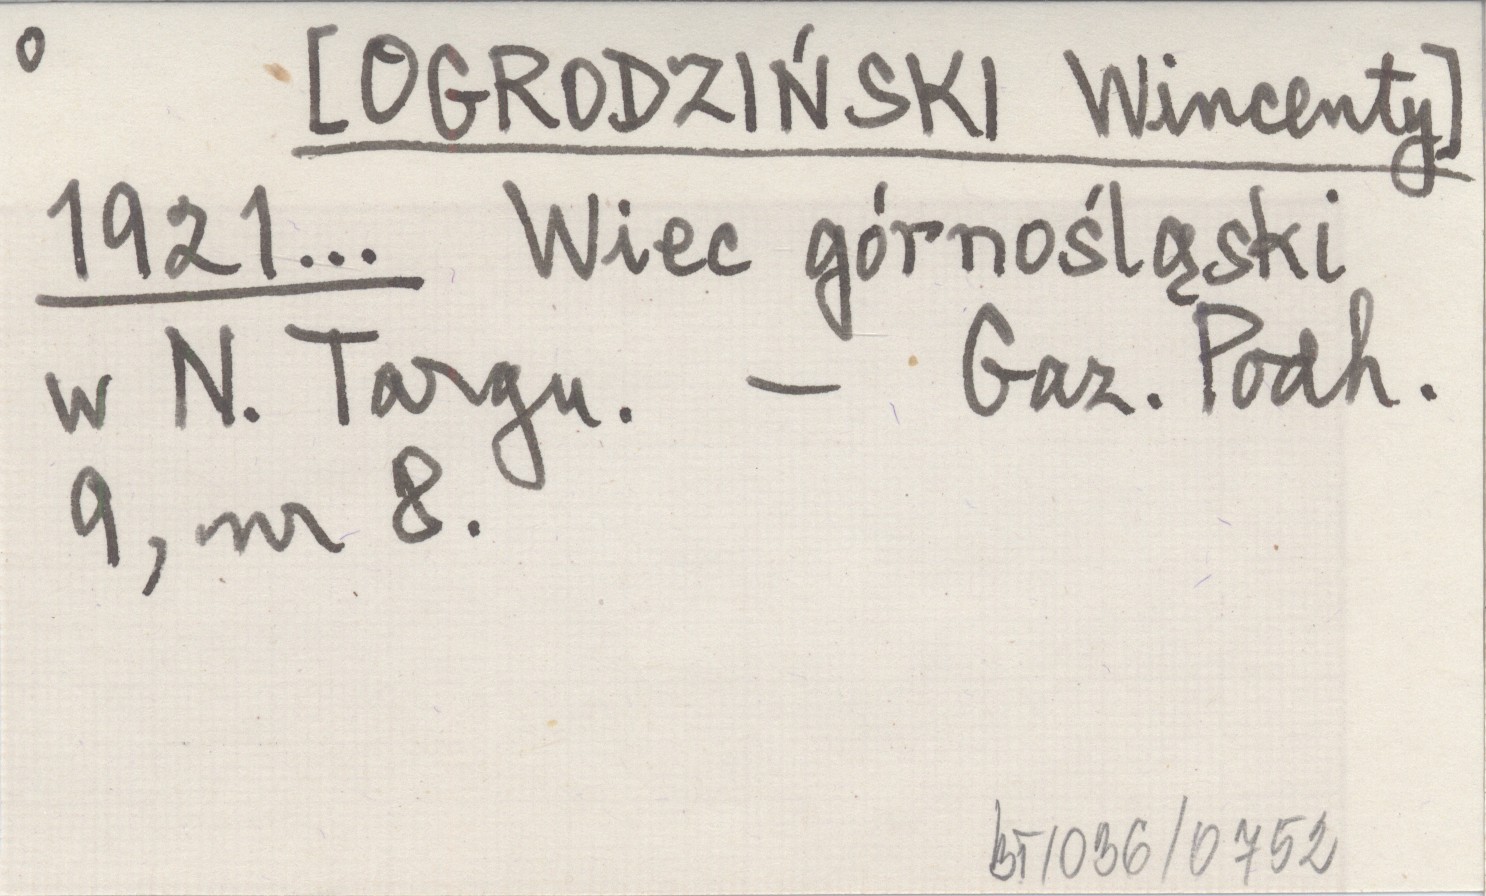 o [OGRODZIŃSKI Wincenty]
1921... Wiec górnośląski
w N. Targu. — Gaz. Podh.
9, nr 8.
BT/036/0752